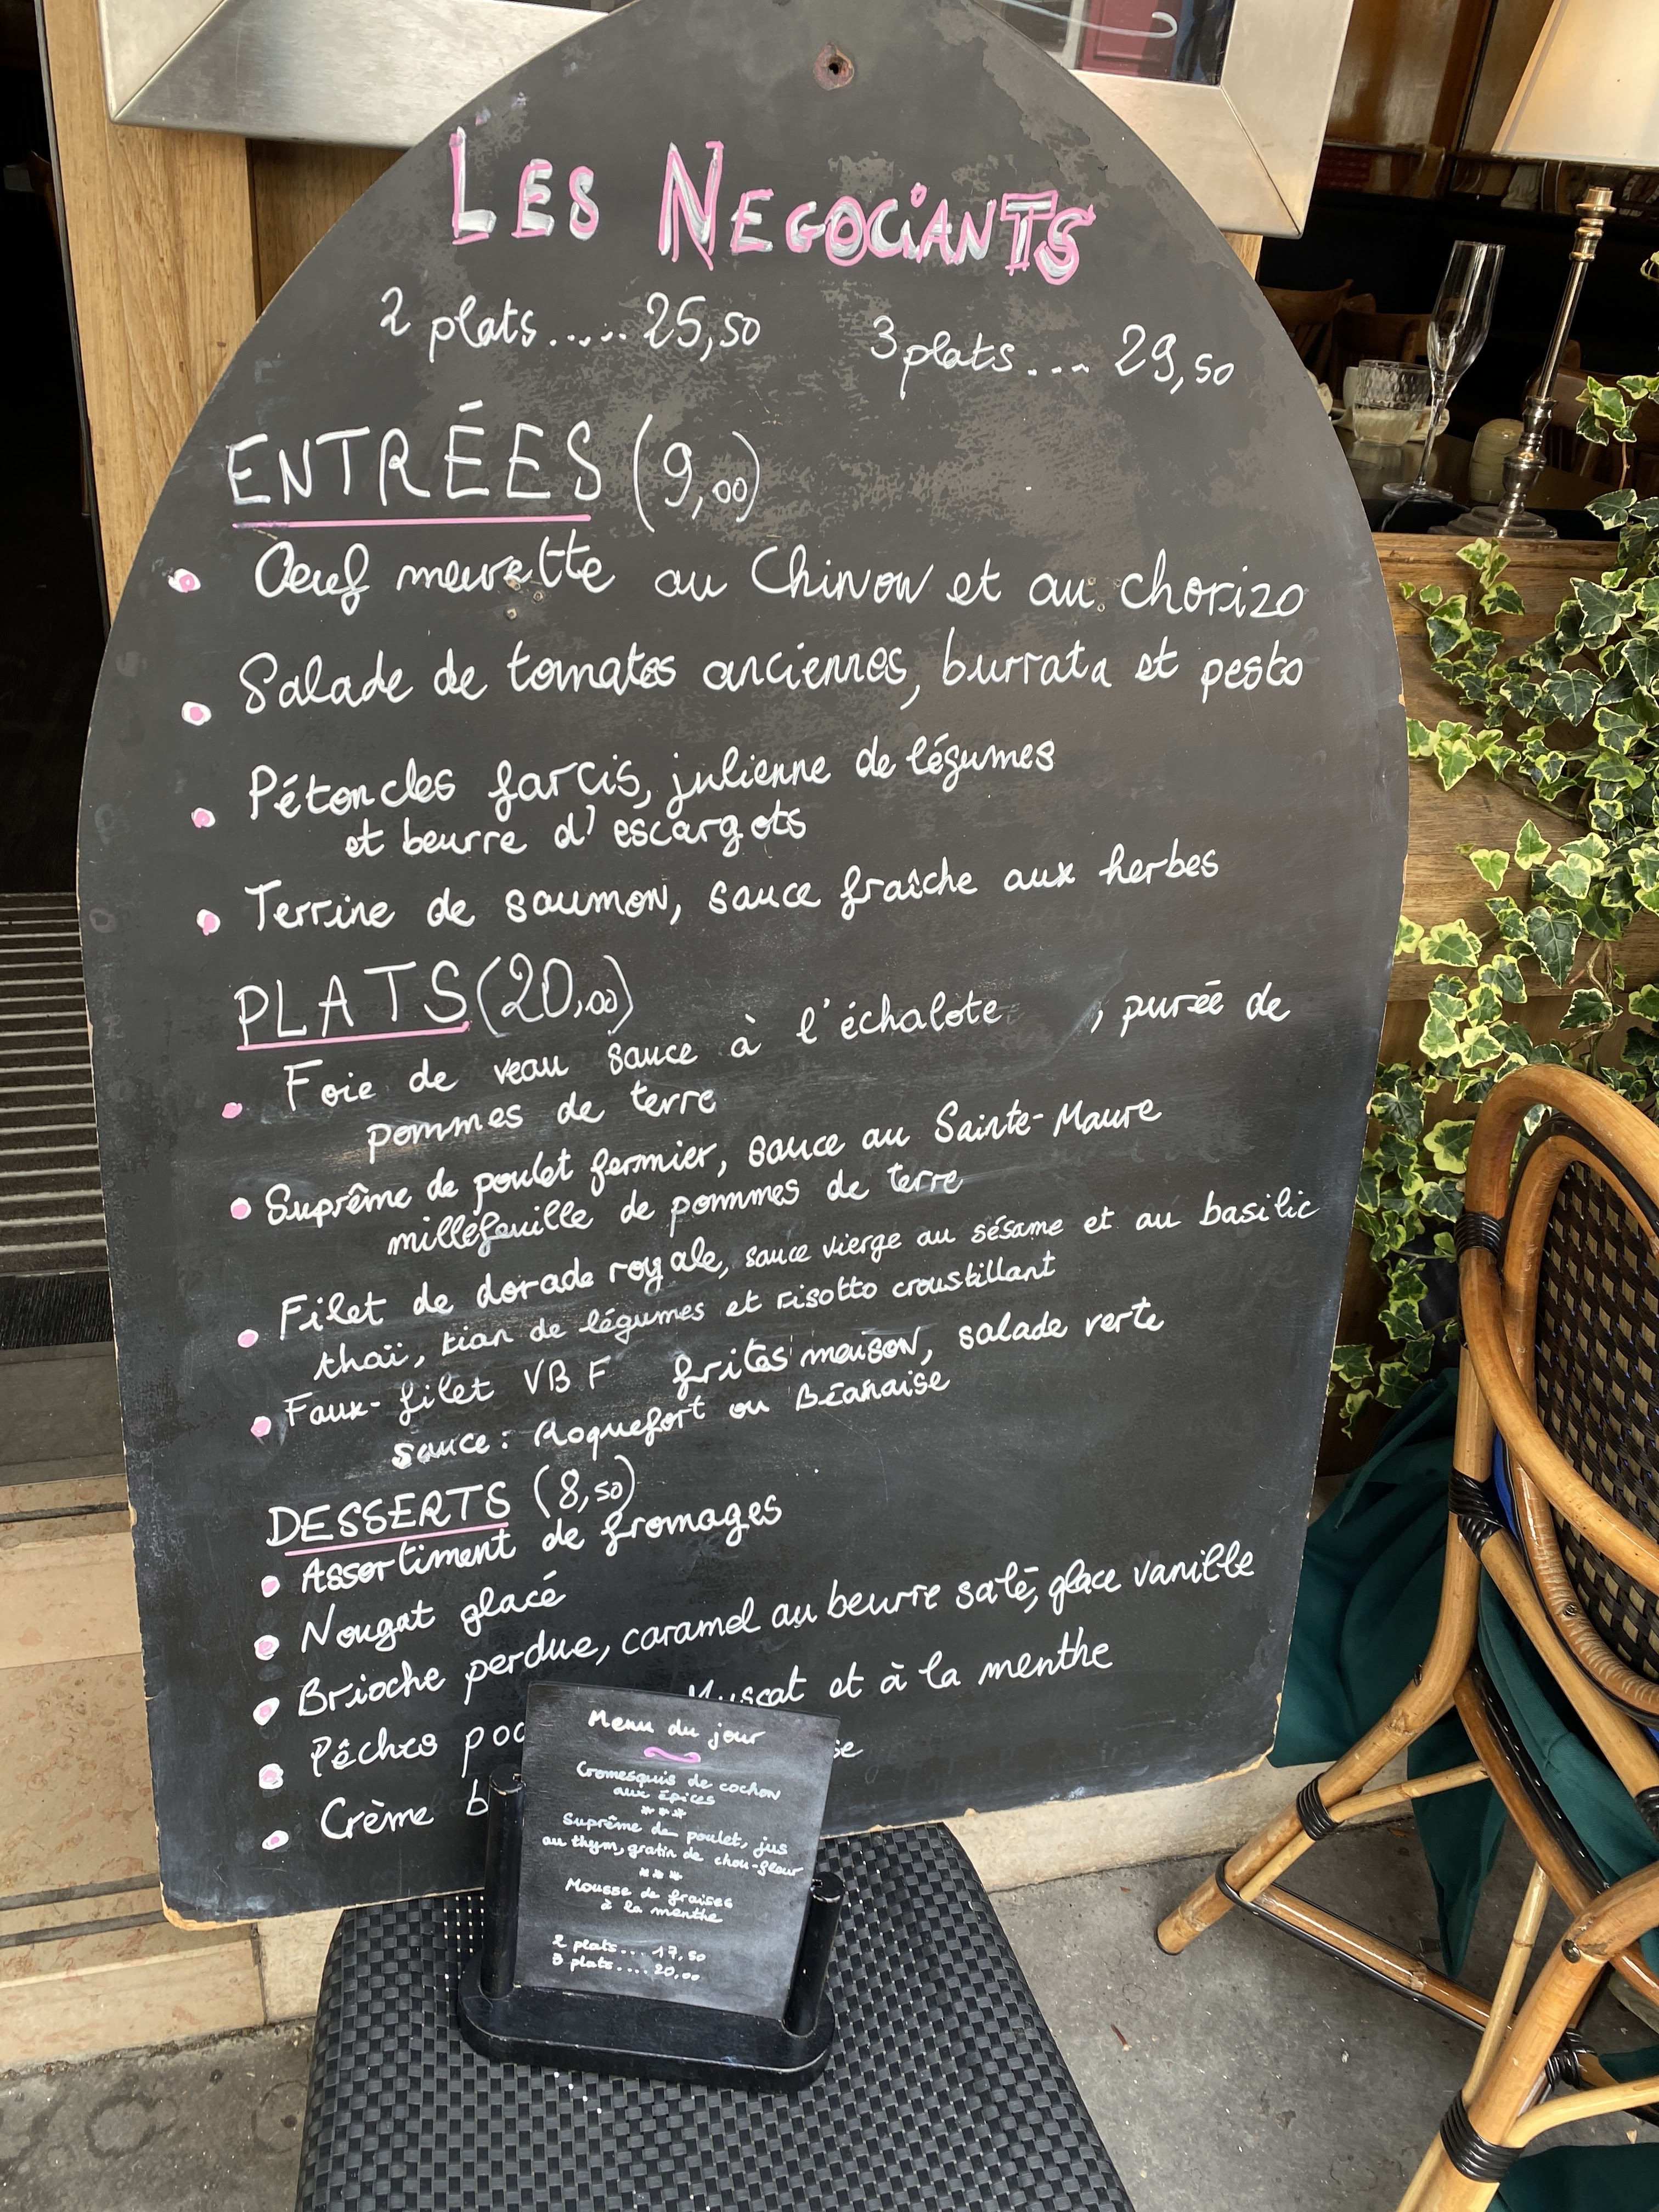 LES NEGOCiANTS
2 plats ..... 25,50 3 plats ... 29,50
ENTRÉES (9,00)
Oeuf meurette au Chinon et au chorizo
Salade de tomates anciennes, burrata et pesto
Pétoncles farcis, julienne de légumes
et beurre d'escargots
Terrine de saumon, sauce fraîche aux herbes
PLATS (20,00)
Foie de veau sauce à l'échalote , purée de
pommes de terre
Suprême de poulet fermier, sauce au Sainte-Maure
millefeuille de pommes de terre
Filet de dorade royale, sauce vierge au sésame et au basilic
thaï, tian de légumes et risotto croustillant
Faux-filet VBF frites maison, salade verte
sauce : Roquefort ou Béarnaise
DESSERTS (8,50)
Assortiment de fromages
Nougat glacé
Brioche perdue, caramel au beurre salé, glace vanille
Pêches Muscat et à la menthe
Crème
Menu du jour
Cromesquis de cochon
aux épices
***
Suprême de poulet, jus
au thym, gratin de chou-fleur
***
Mousse de fraises
à la menthe
2 plats... 17,50
3 plats.... 20,00